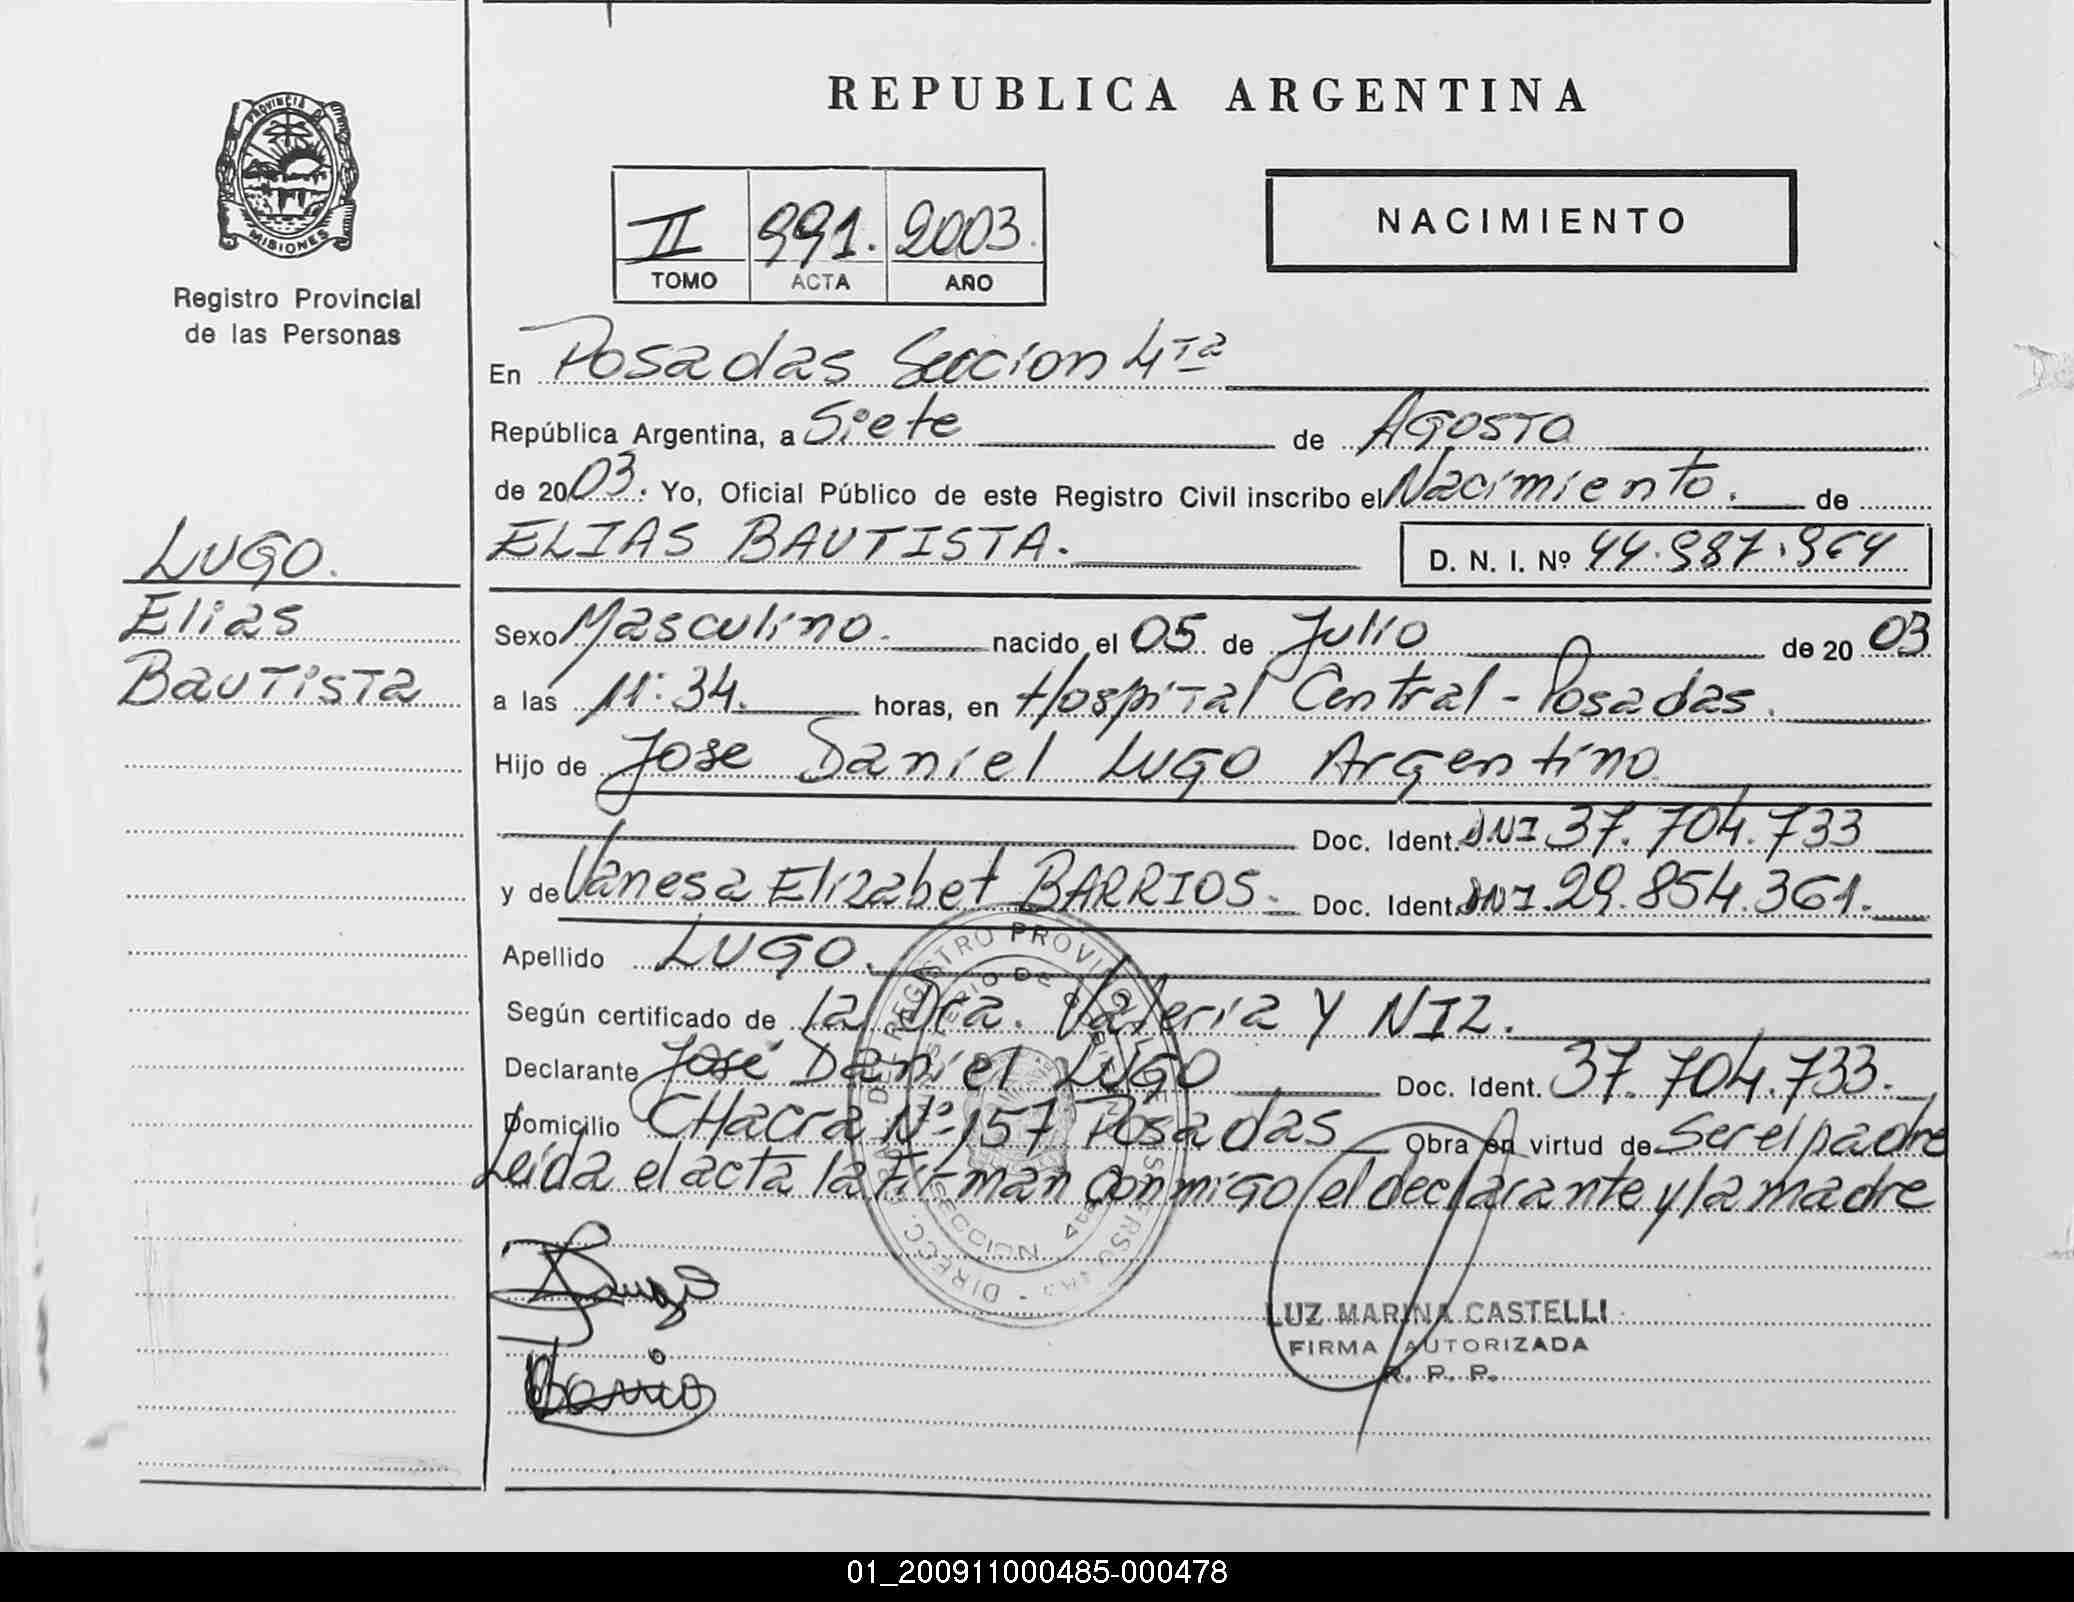 REPUBLICA ARGENTINA
PROVINCIA DE
MISIONES
Registro Provincial
de las Personas
II 991. 2003.
TOMO ACTA AÑO
NACIMIENTO
En Posadas Seccion 4ta
República Argentina, a Siete de Agosto
de 2003. Yo, Oficial Público de este Registro Civil inscribo el Nacimiento. de
ELIAS BAUTISTA. D. N. I. Nº 44.987.964
LUGO.
Elias
Bautista
Sexo Masculino. nacido el 05 de Julio de 2003
a las 11:34. horas, en Hospital Central - Posadas.
Hijo de Jose Daniel Lugo Argentino
Doc. Ident. DNI 37.704.733
y de Vanesa Elizabet BARRIOS. Doc. Ident. DNI. 29.854.361.
Apellido LUGO.
Según certificado de la Dra. Valeria Y NIZ.
Declarante José Daniel LUGO Doc. Ident. 37.704.733.
Domicilio CHacra Nº 157 Posadas Obra en virtud de Ser el padre
Leida el acta la Firman Conmigo el declarante y la madre
Lugo
Barrio
LUZ MARINA CASTELLI
FIRMA AUTORIZADA
R. P. P.
01_200911000485-000478